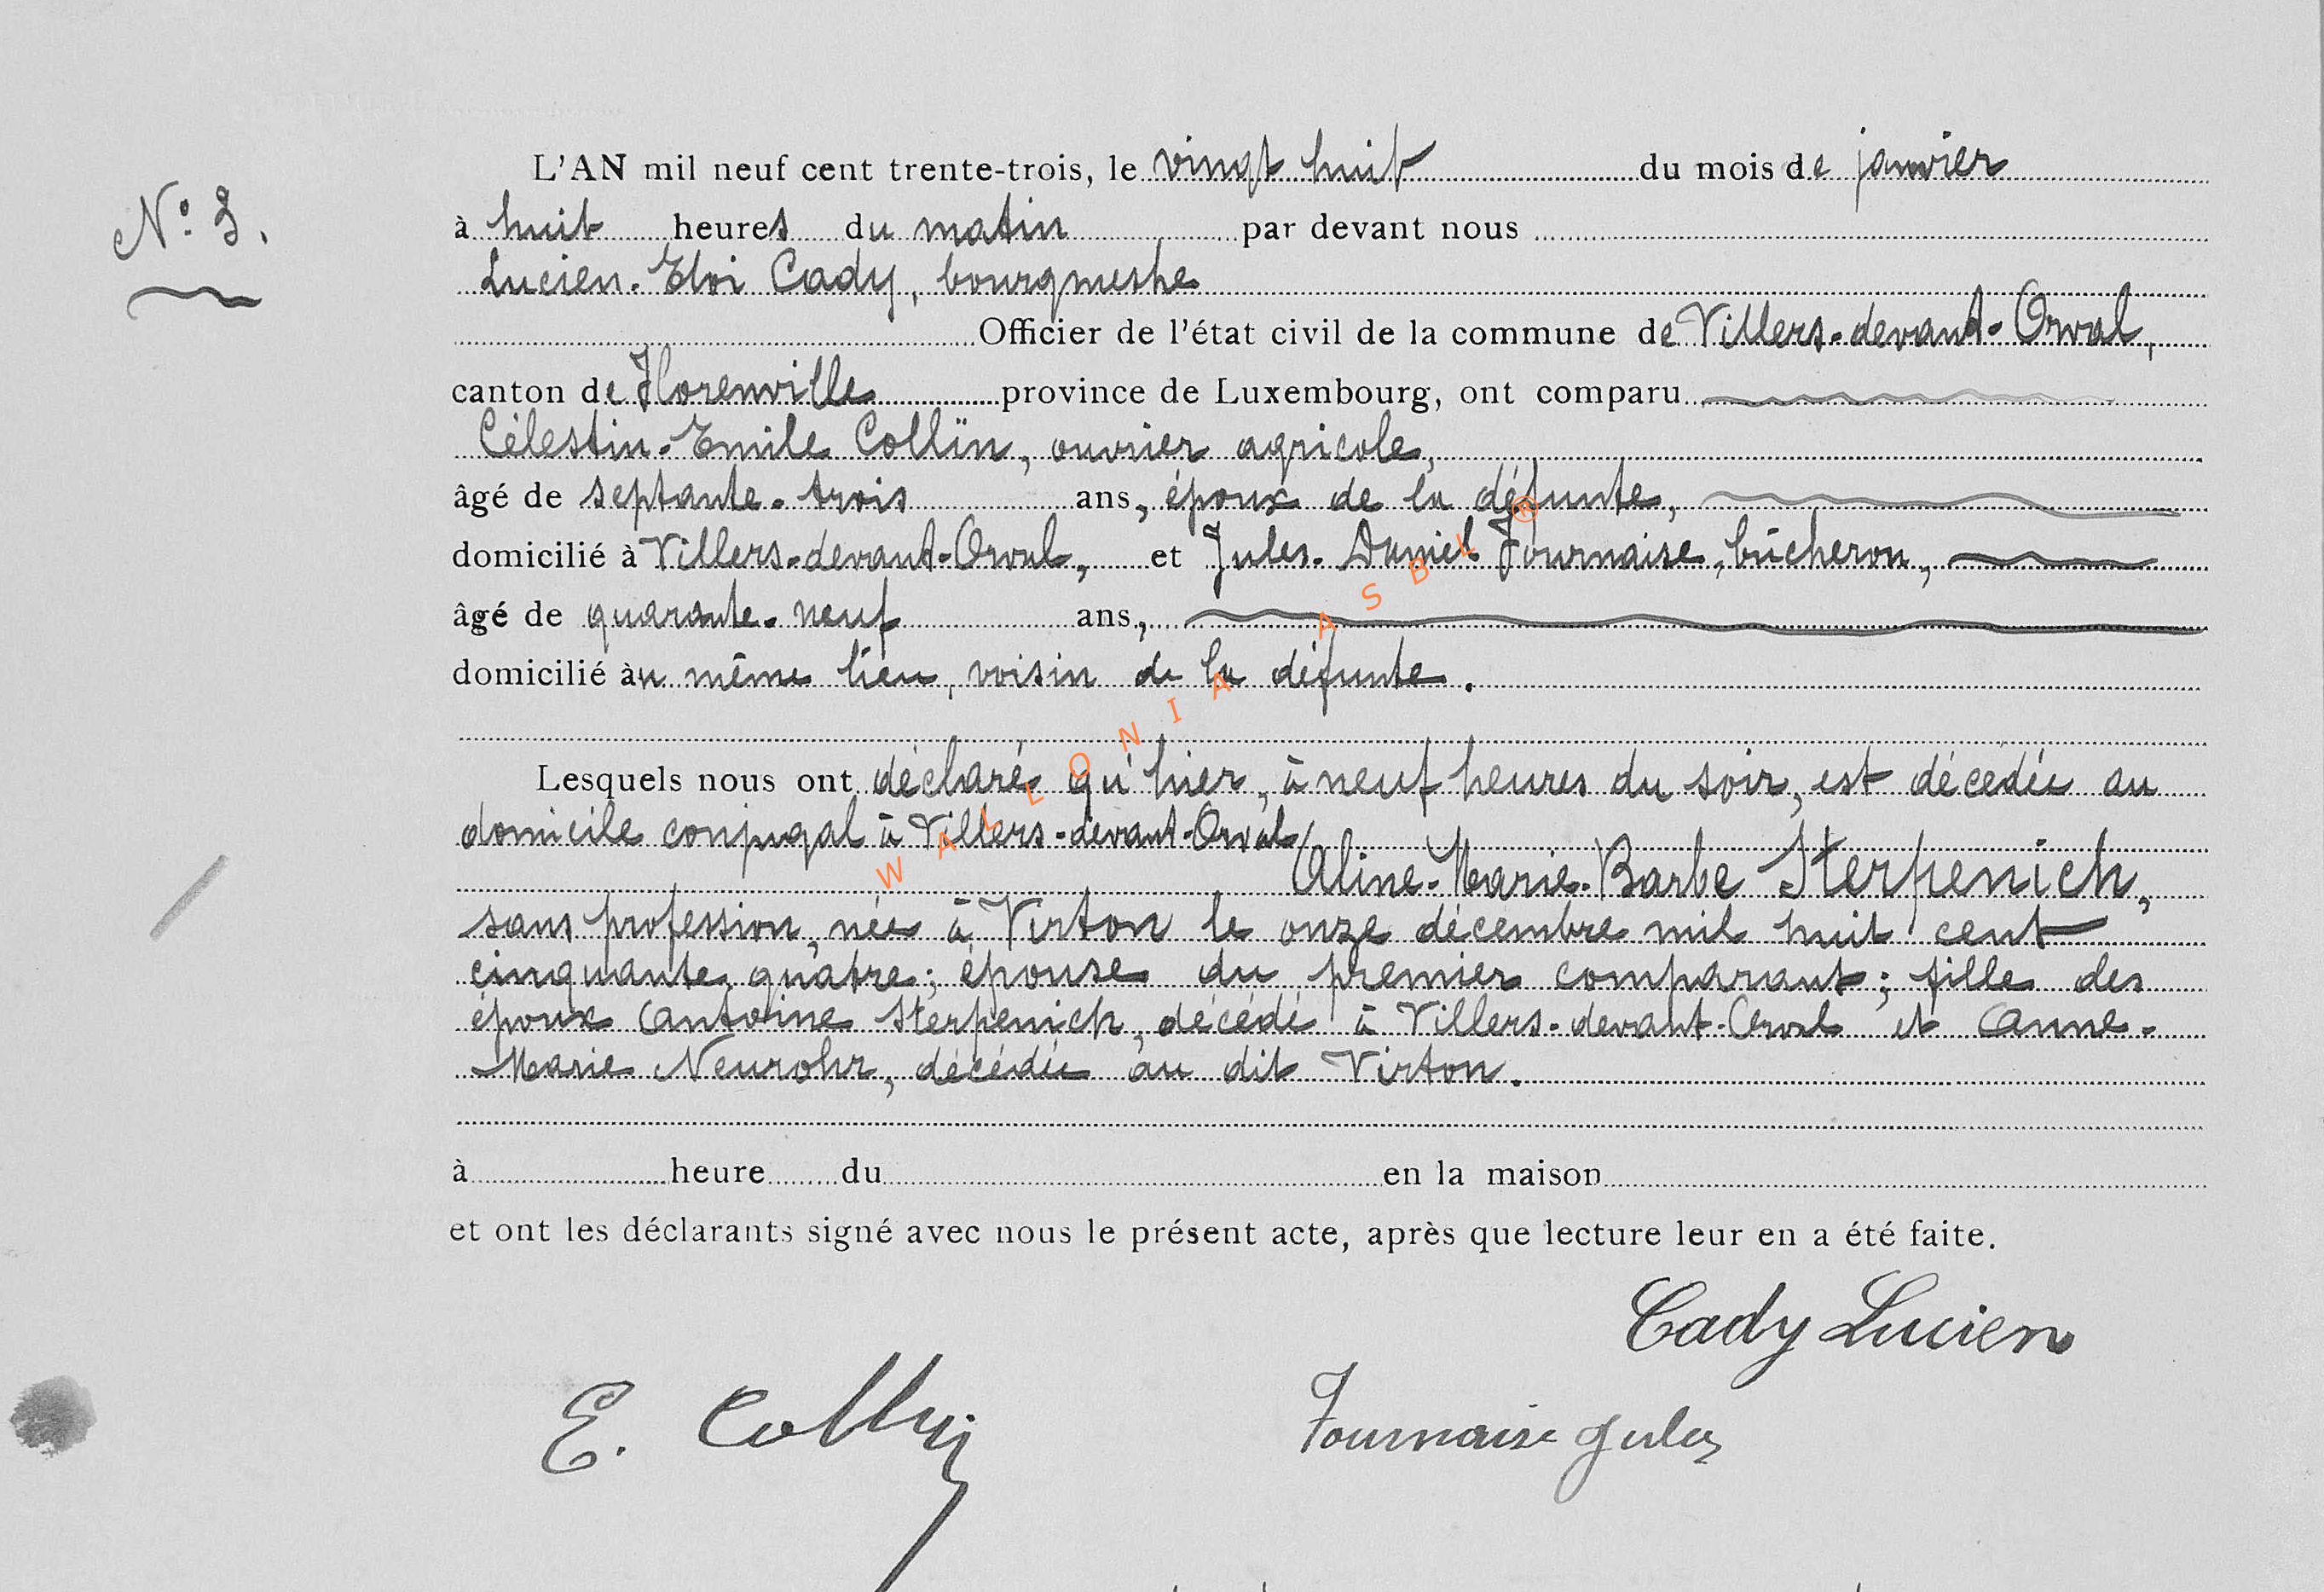 L'AN mil neuf cent trente-trois, le vingt huit du mois de janvier
N° 3.
à huit heures du matin par devant nous
Lucien-Eloi Cady, bourgmestre
Officier de l'état civil de la commune de Villers-devant-Orval,
canton de Florenville province de Luxembourg, ont comparu
Célestin-Emile Collin, ouvrier agricole,
âgé de septante-trois ans, époux de la défunte,
domicilié à Villers-devant-Orval, et Jules-Daniel Fournaise, bûcheron,
âgé de quarante-neuf ans,
domicilié au même lieu, voisin de la défunte.
Lesquels nous ont déclaré qu'hier, à neuf heures du soir, est décédée au
domicile conjugal à Villers-devant-Orval
Aline-Marie-Barbe Sterpenich,
sans profession, née à Virton le onze décembre mil huit cent
cinquante quatre; épouse du premier comparant; fille des
époux Antoine Sterpenich, décédé à Villers-devant-Orval et Anne-
Marie Neurohr, décédée au dit Virton.
à heure du en la maison
et ont les déclarants signé avec nous le présent acte, après que lecture leur en a été faite.
Cady Lucien
E. Collin
Fournaise Jules
WALLONIA ASBL ®